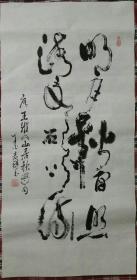 明月松間照
清泉石上流
唐王維山居秋暝句